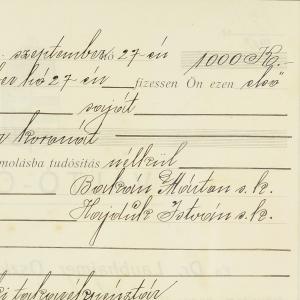 szeptember hó 27-én 1000 K.-
ber hó 27-én fizessen Ön ezen első
saját
koronát
molásba tudósitás nélkül
Barkán Márton s.k.
Hajduk István s.k.
takarékpénztár